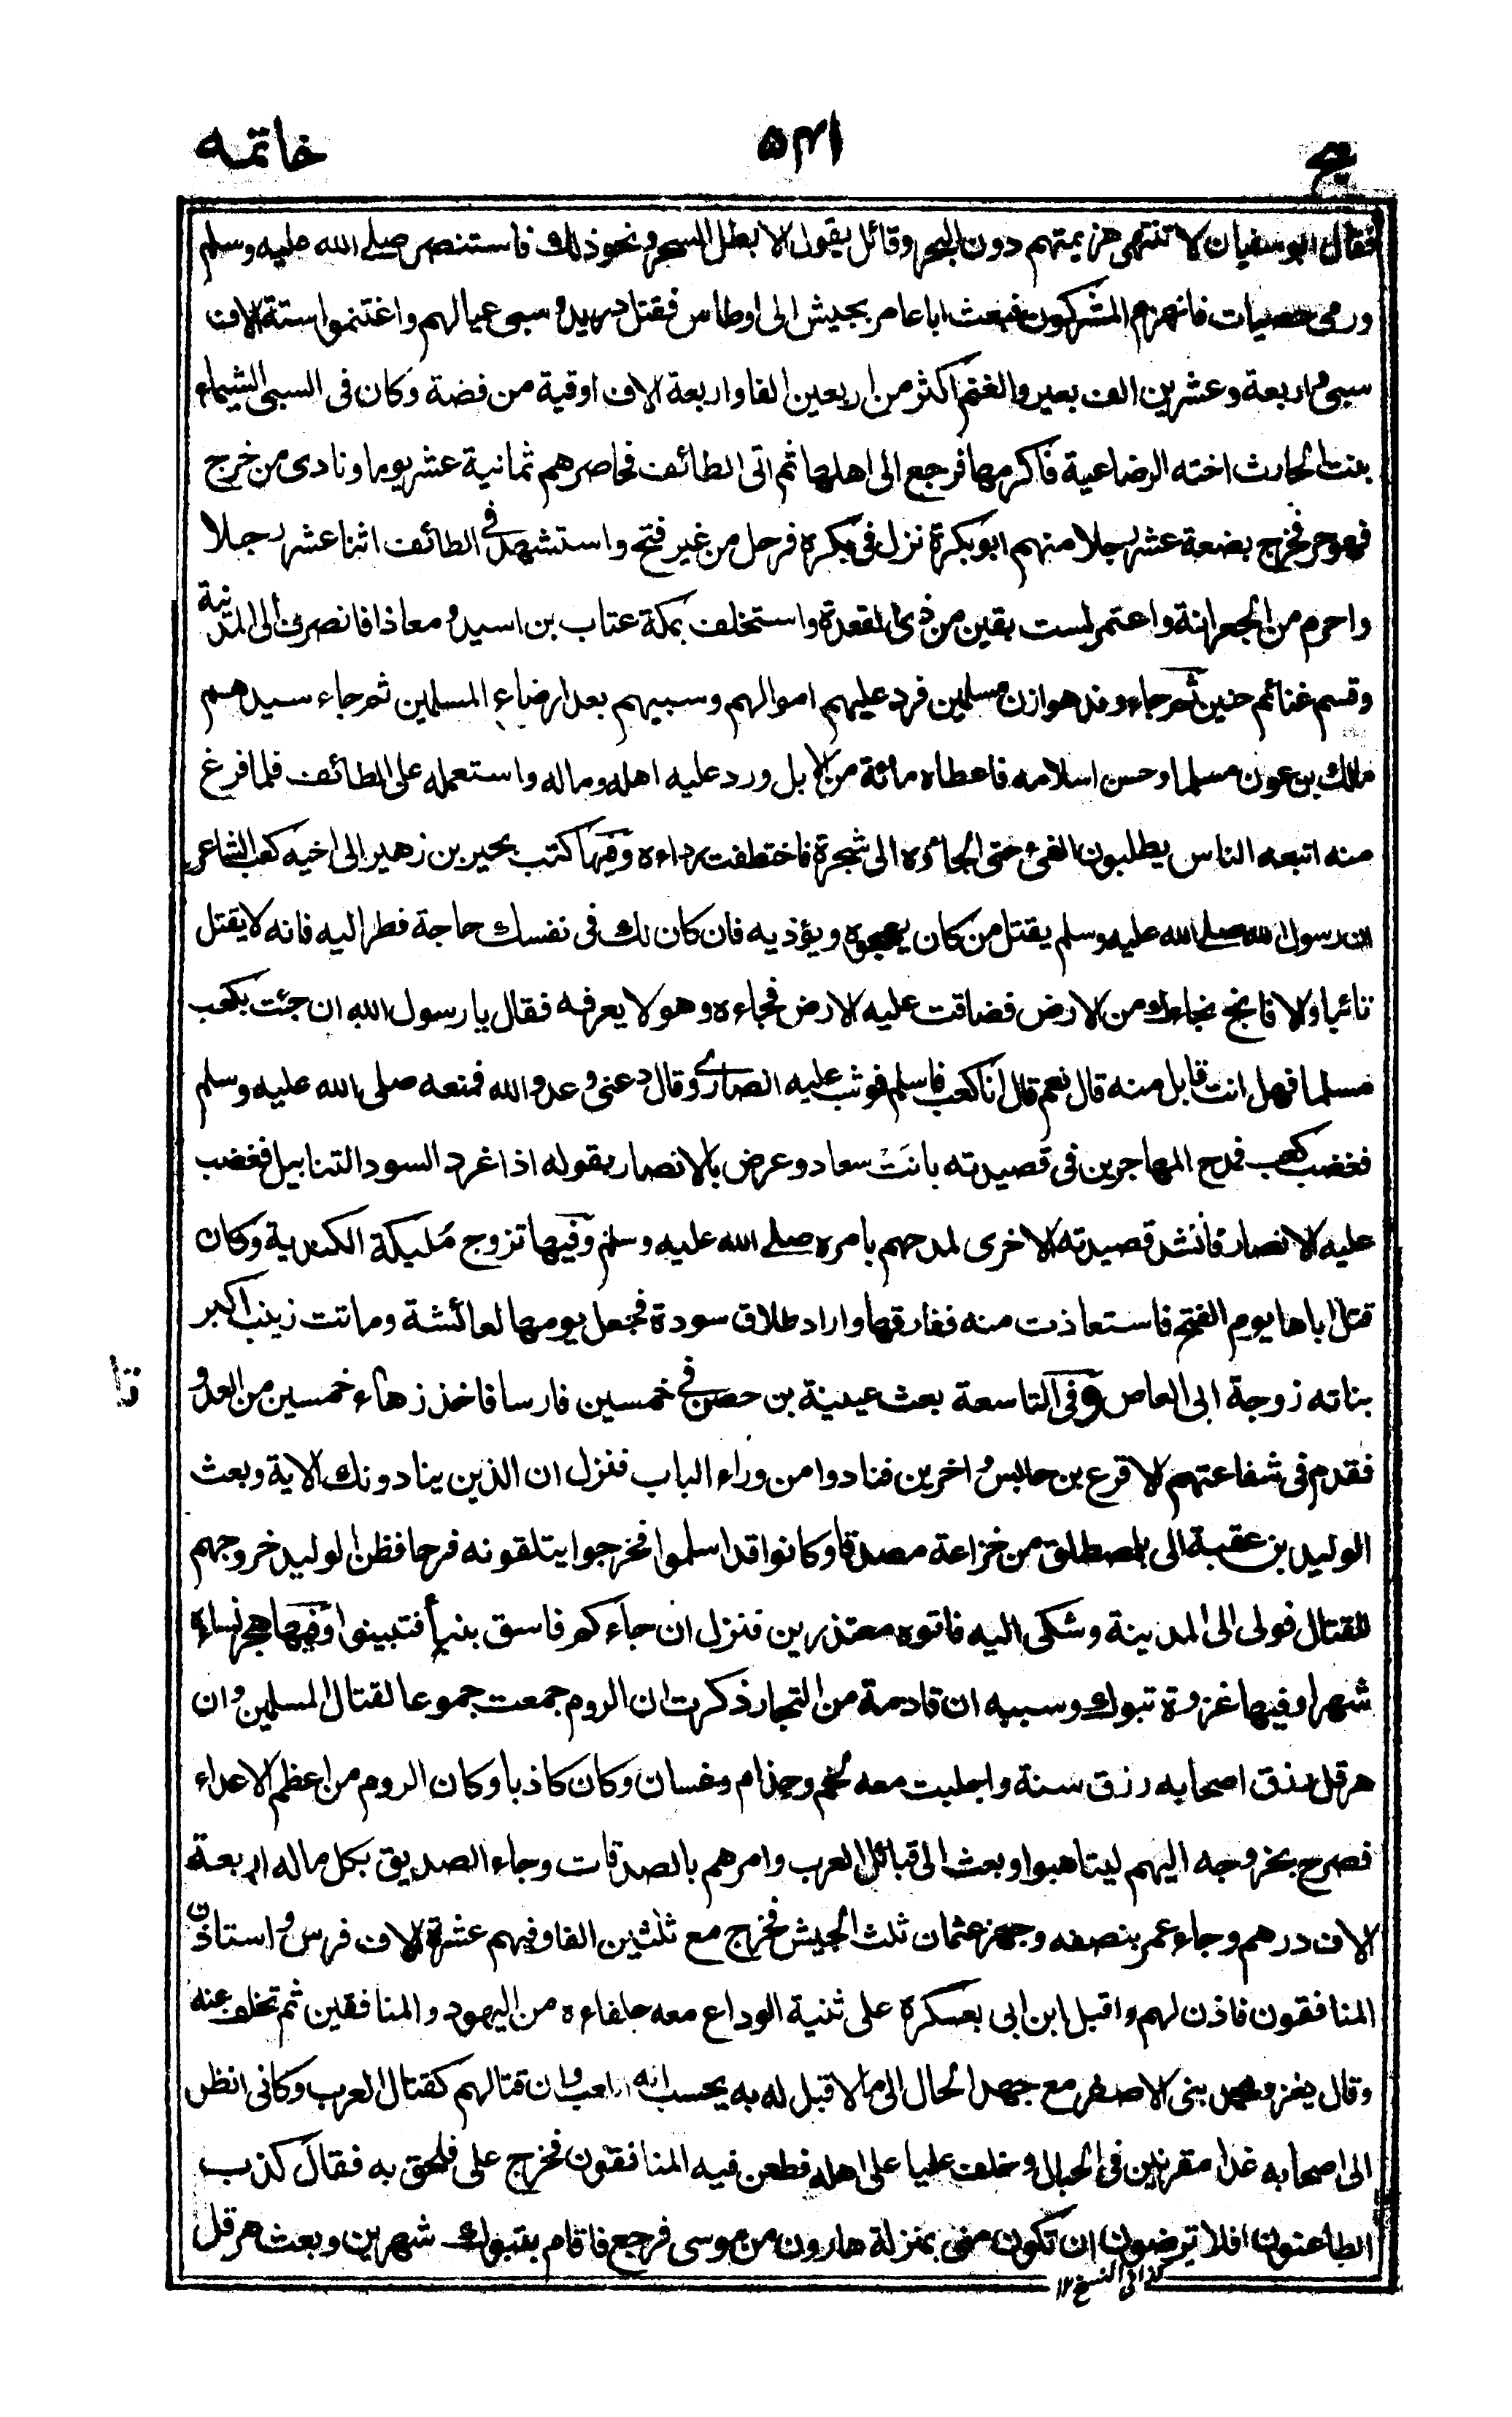 ج ٥٤١ خاتمه
فقال ابو سفيان لا تنتهى هزيمتهم دون البحر وقائل يقول الا بطل السحر ونحو ذلك فاستنصر صلے الله عليه وسلم
ورمى حصيات فانهزم المشركون فبعث ابا عامر بجيش الى اوطاس فقتل دريد و سبى عيالهم واغتنموا ستة الاف
سبى و اربعة وعشرين الف بعير والغنم اكثر من اربعين الفا واربعة الاف اوقية من فضة وكان فى السبى الشيماء
بنت الحارث اخته الرضاعية فاكرمها فرجع الى اهلها ثم اتى الطائف فحاصرهم ثمانية عشر يوما ونادى من خرج
فهو حر فخرج بضعة عشر رجلا منهم ابو بكرة نزل فى بكره فرحل من غير فتح واستشهد فى الطائف اثنا عشر رجلا
واحرم من الجعرانة واعتمر لست بقين من ذى القعدة واستخلف بمكة عتاب بن اسيد و معاذا فانصرف الى المدينة
وقسم غنائم حنين ثم جاء وفد هوازن مسلمين فرد عليهم اموالهم وسبيهم بعد ارضاء المسلمين ثم جاء سيدهم
مالك بن عون مسلما وحسن اسلامه فاعطاه مائة من الابل ورد عليه اهله وماله واستعمله على الطائف فلما فرغ
منه اتبعه الناس يطلبون الفئ حتى الجاؤه الى شجرة فاختطفت رداءه وفيها كتب بحير بن زهير الى اخيه كعب الشاعر
ان رسول الله صلے الله عليه وسلم يقتل من كان يهجوه ويؤذيه فان كان لك فى نفسك حاجة فطر اليه فانه لا يقتل
تائبا والا فانج نجاءك من الارض فضاقت عليه الارض فجاءه وهو لا يعرفه فقال يا رسول الله ان جئت بكعب
مسلما فهل انت قابل منه قال نعم قال انا كعب فاسلم فوثب عليه انصارى وقال دعنى و عدو الله فمنعه صلى الله عليه وسلم
فغضب كعب فمدح المهاجرين فى قصيدته بانَتْ سعاد وعرض بالانصار بقوله اذا غرد السود التنابيل فغضب
عليه الانصار فانشد قصيدته الاخرى لمدحهم بامره صلے الله عليه وسلم وفيها تزوج مُليكة الكندية وكان
قتل اباها يوم الفتح فاستعاذت منه ففارقها واراد طلاق سودة فجعل يومها لعائشة وماتت زينب اكبر
بناته زوجة ابى العاص وفى التاسعة بعث عيينة بن حصن فى خمسين فارسا فاخذ زهاء خمسين من العدو
فقدم فى شفاعتهم الاقرع بن حابس و اخرين فنادوا من وراء الباب فنزل ان الذين ينادونك الاية وبعث
الوليد بن عقبة الى المصطلق من خزاعة مصدقا وكانوا قد اسلموا فخرجوا يتلقونه فرحا فظن الوليد خروجهم
للقتال فولى الى المدينة وشكى اليه فاتوه معتذرين فنزل ان جاءكم فاسق بنبأ فتبينوا وفيها هجر نساءه
شهرا وفيها غزوة تبوك وسببه ان قادمة من التجار ذكرت ان الروم جمعت جموعا لقتال المسلمين و ان
هرقل رزق اصحابه رزق سنة واجلبت معه لخم وجذام وغسان وكان كاذبا وكان الروم من اعظم الاعداء
فصرح بخروجه اليهم ليتاهبوا وبعث الى قبائل العرب وامرهم بالصدقات وجاء الصديق بكل ماله اربعة
الاف درهم وجاء عمر بنصفه وجهز عثمان ثلث الجيش فخرج مع ثلثين الفا وفيهم عشرة الاف فرس و استاذن
المنافقون فاذن لهم واقبل ابن ابى بعسكرة على ثنية الوداع معه حلفاءه من اليهود والمنافقين ثم تخلف عنه
وقال يغزو محمد بنى الاصفر مع جهد الحال الى ما لا قبل له به يحسب انه اللعب و ان قتالهم كقتال العرب وكانى انظر
الى اصحابه غدا مقرنين فى الحبال وخلف عليا على اهله فطعن فيه المنافقون فخرج على فلحق به فقال كذب
الطاعنون افلا ترضون ان تكون منى بمنزلة هارون من موسى فرجع فاقام بتبوك شهرين وبعث هرقل
كذا فى النسخ ١٢
تا